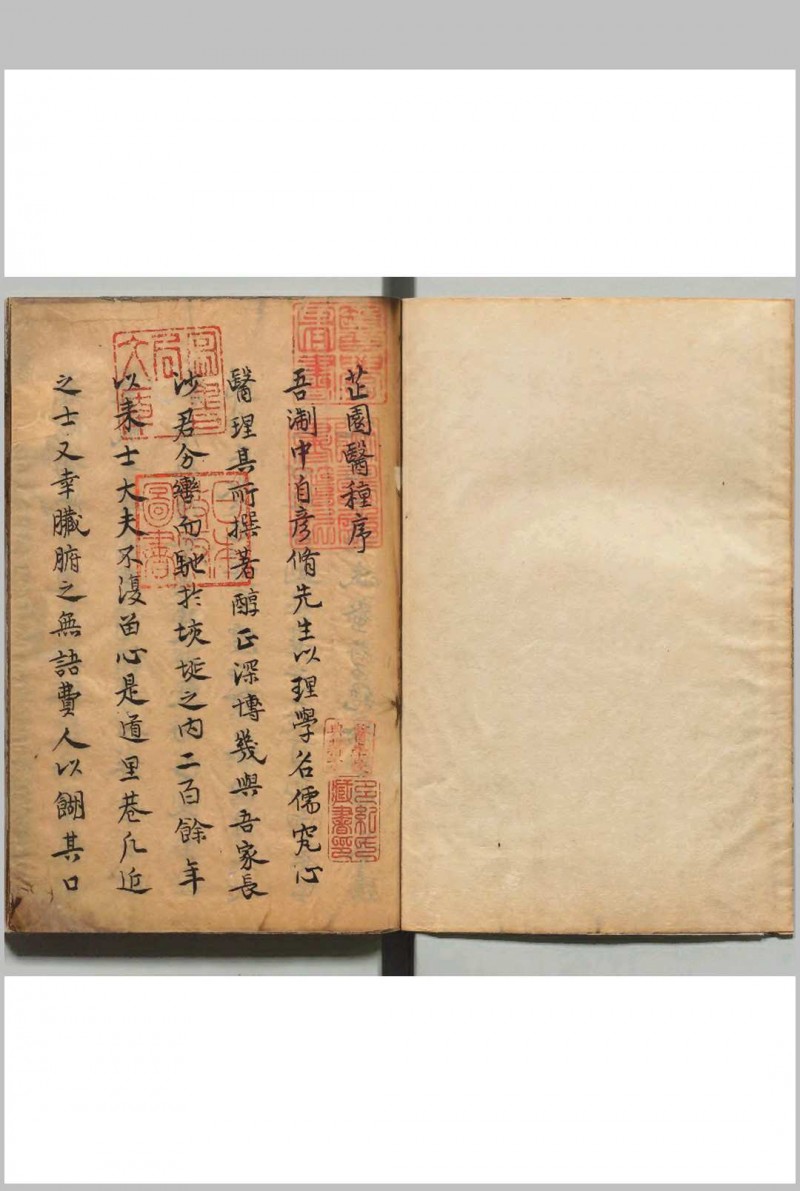 芷園醫種序
吾淛中自彥脩先生以理學名儒究心
醫理其所撰著醇正深博幾與吾家長
沙君分轡而馳於垓埏之內二百餘年
以来士大夫不復留心是道里巷凡近
之士又幸臟腑之無語費人以餬其口
藏書印
圖書